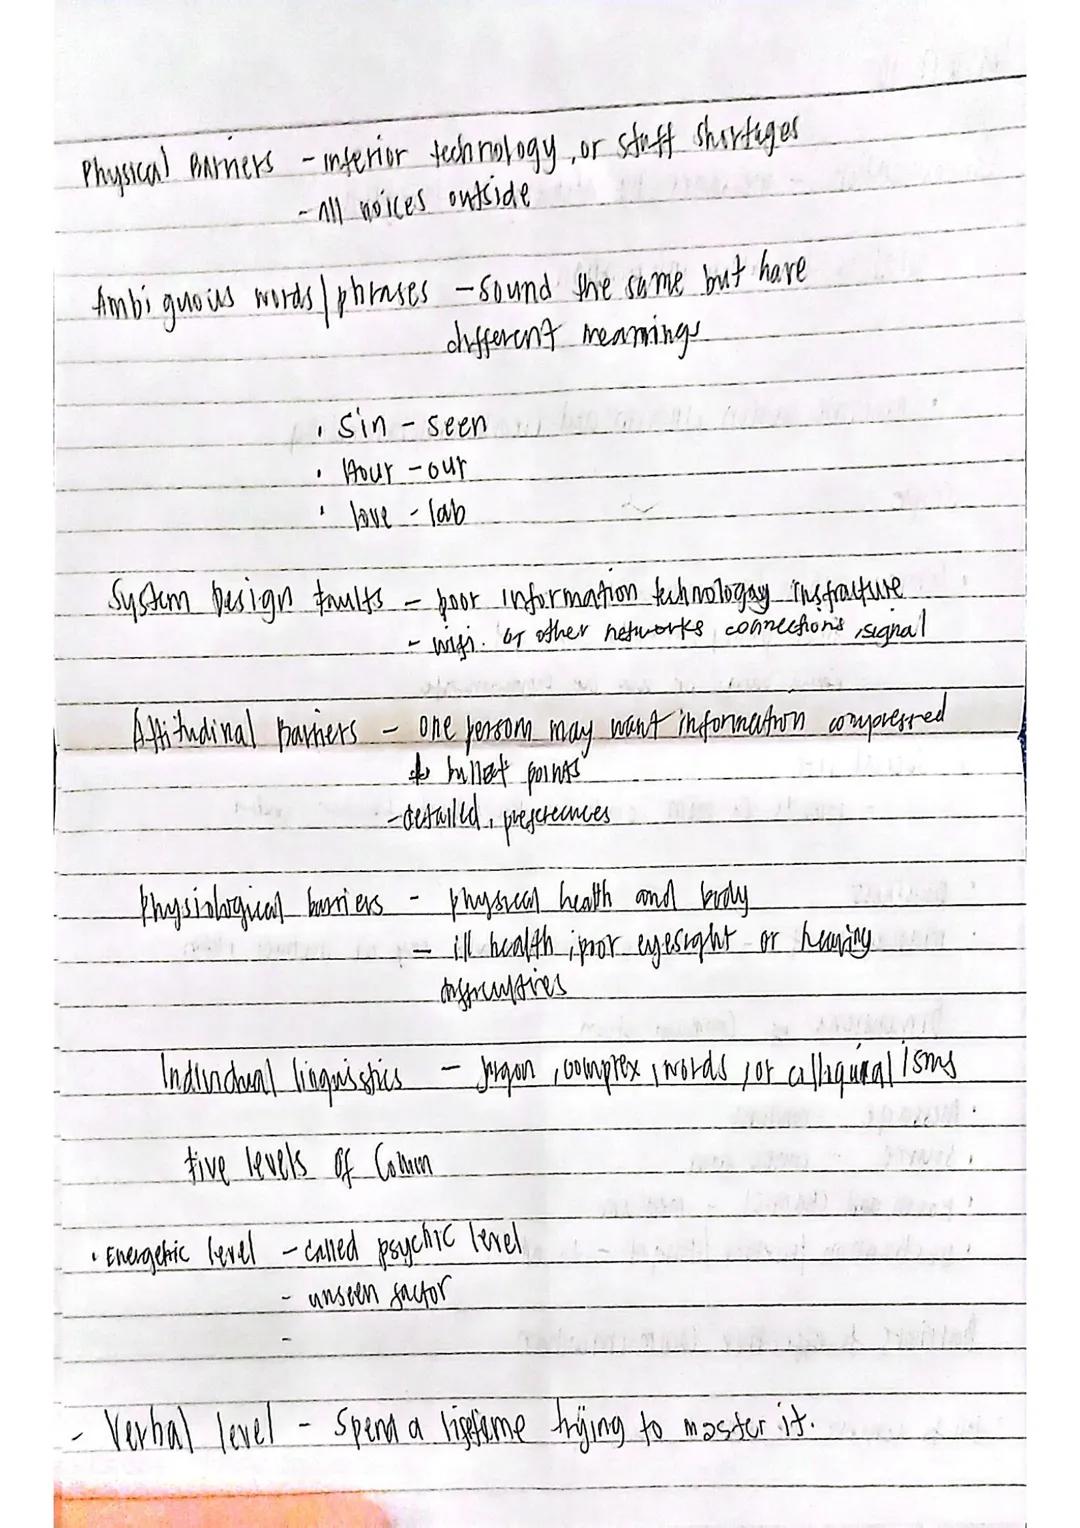 Physical Barriers - inferior technology, or staff shortages
- All noices outside
Ambiguous words/phrases - sound the same but have
different meanings
• Sin - seen
• Hour - our
• love - lab
System Design faults - poor information technologay insfracture
- wifi. or other networks connections, signal
Attitudinal Barriers - one person may want information compressed
bullet points
- detailed, prefereances
Physiological barriers - physical health and body
- ill health, poor eyesight or hearing
Individual linguistics - jargon, complex, words, or
five levels of Comm
• Energetic level - called psychic level
- unseen factor
-
- Verbal level - Spend a lifetime trying to master it.